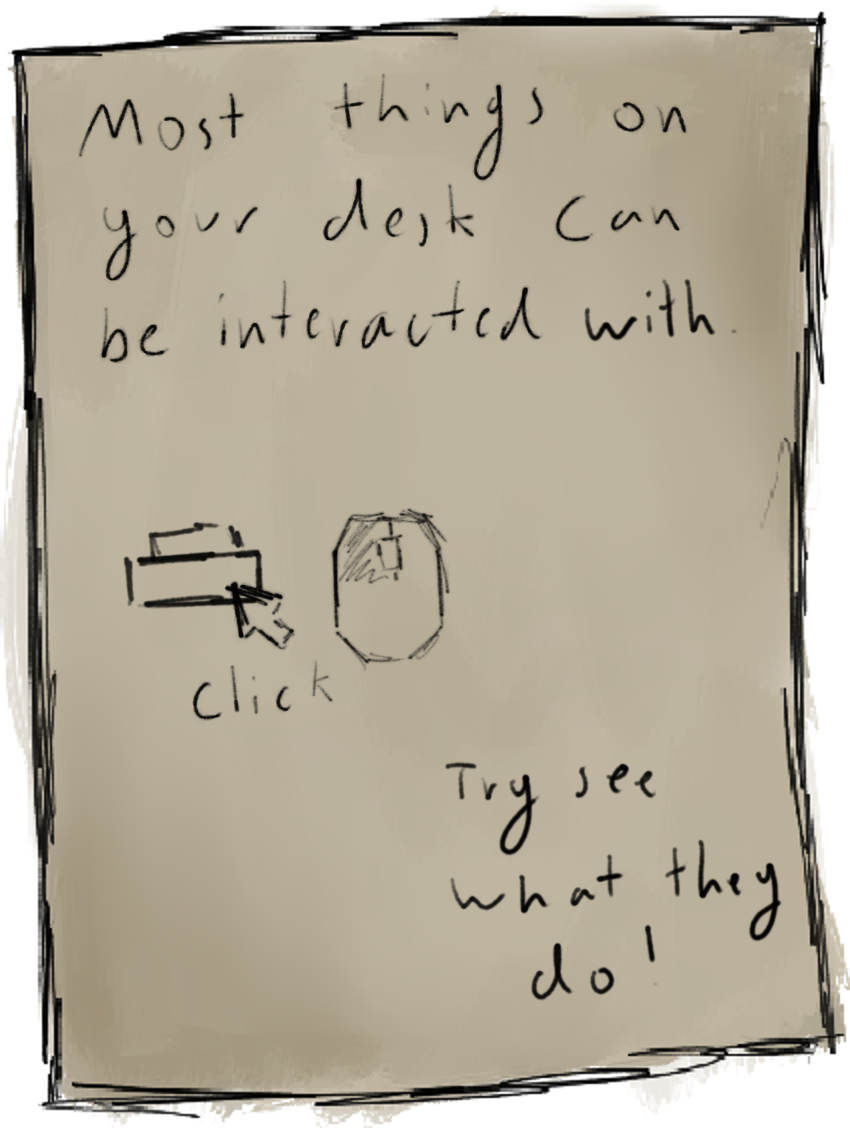 Most things on
your desk can
be interacted with.
Click
Try see
what they
do!